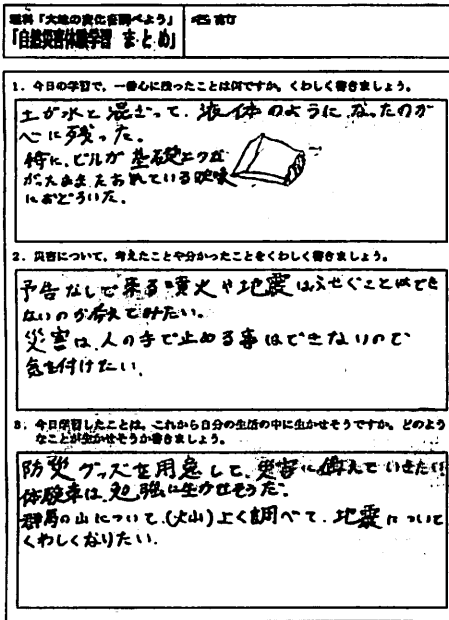 理科「大地の変化を調べよう」
「自然災害体験学習 まとめ」
名前
1．今日の学習で、一番心に残ったことは何ですか。くわしく書きましょう。
土が水と混ざって、液体のようになったのが
心に残った。
特に、ビルが基礎
たおれている映像
におどろいた。
2．災害について、考えたことや分かったことをくわしく書きましょう。
予告なしで来る噴火や地震はふせぐことはでき
ないのか考えてみたい。
災害は、人の手で止める事はできないので
気を付けたい。
3．今日学習したことは、これから自分の生活の中に生かせそうですか。どのよう
なことが生かせそうか書きましょう。
防災グッズを用意して、災害に備えていきたい
体験車は、勉強に生かせそうだ。
群馬の山について、(火山)よく調べて、地震について
くわしくなりたい。